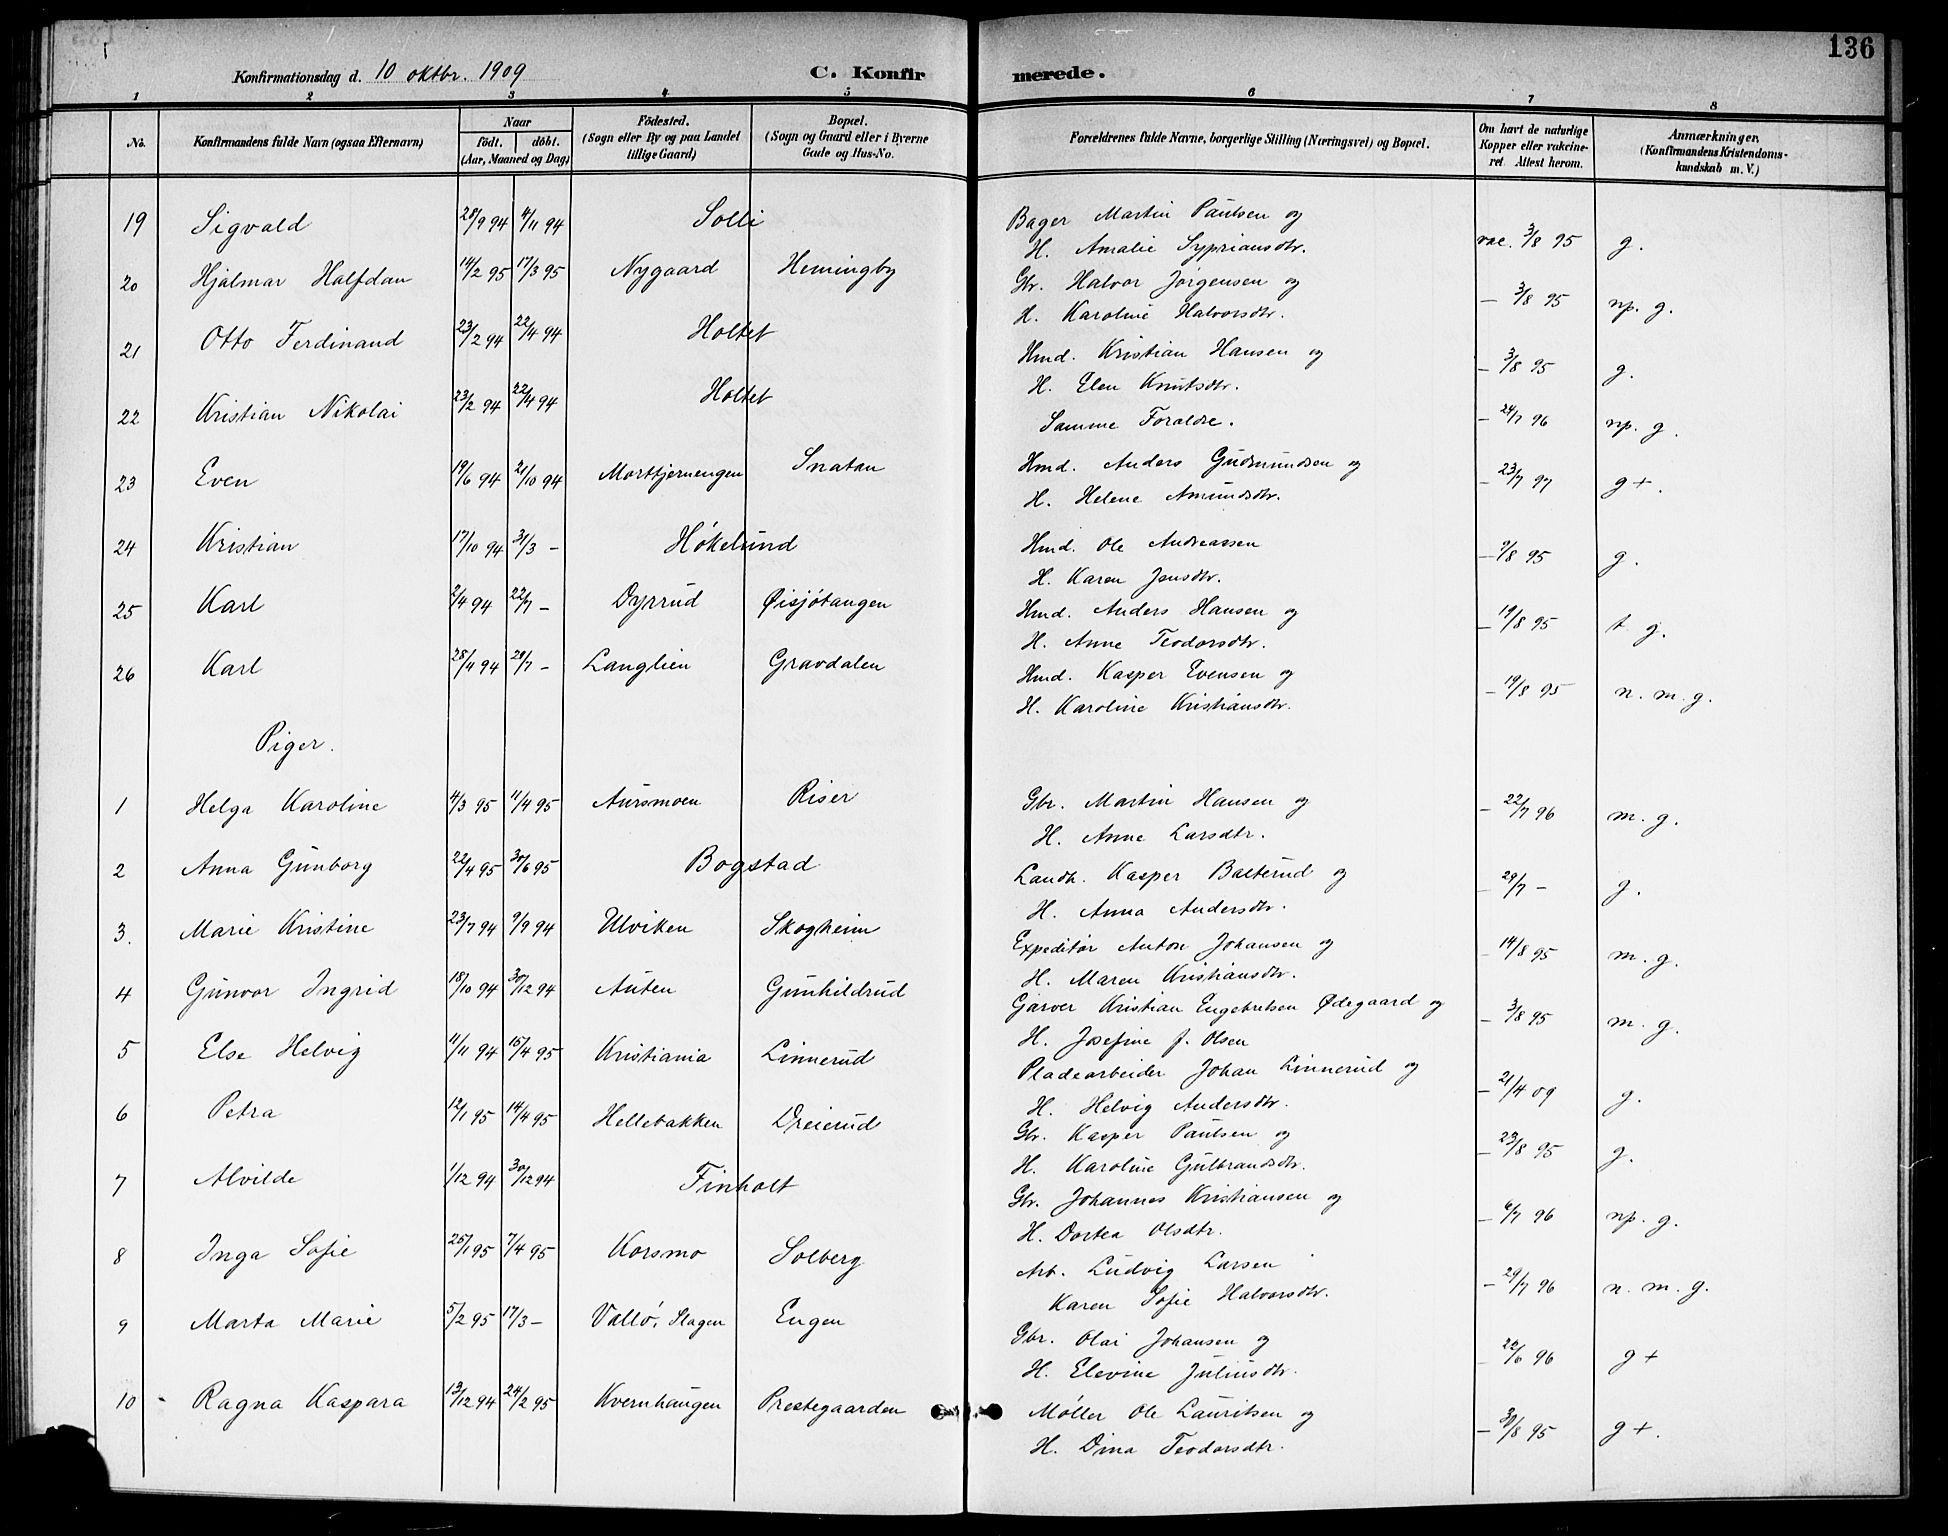 136
Konfirmationsdag d. 10 oktbr. 1909 C. Konfirmerede.
1 2 3 4 5 6 7 8
No. Konfirmandens fulde Navn (ogsaa Efternavn) Naar født. døbt. (Aar, Maaned og Dag) Fødested. (Sogn eller By og paa Landet tillige Gaard) Bopæl. (Sogn og Gaard eller i Byerne Gade og Hus-No. Forældrenes fulde Navne, borgerlige Stilling (Næringsvei) og Bopæl. Om havt de naturlige Kopper eller vakcineret. Attest herom. Anmærkninger, (Konfirmandens Kristendomskundskab m. V.)
19 Sigvald 28/9 94 4/11 94 Solli Bager Martin Paulsen og
H. Amalie Sypriansdtr. vac. 3/8 95 g.
20 Hjalmar Halfdan 14/2 95 17/3 95 Nygaard Hemingby Gbr. Halvor Jørgensen og
H. Karoline Halvorsdtr. — 3/8 95 np. g.
21 Otto Ferdinand 23/2 94 22/4 94 Holtet Hmd. Kristian Hansen og
H. Elen Knutsdtr. — 3/8 95 g.
22 Kristian Nikolai 23/2 94 22/4 94 Holtet Samme Foraldre. — 24/7 96 np. g.
23 Even 19/6 94 21/10 94 Morttjernengen Snatan Hmd. Anders Gudmundsen og
H. Helene Amundsdtr. — 23/7 97 g+.
24 Kristian 17/10 94 31/3 — Høkelund Hmd. Ole Andreassen
H. Karen Jensdtr. — 9/8 95 g.
25 Karl 2/4 94 22/7 — Dyrrud Øisjøtangen Hmd. Anders Hansen og
H. Anne Teodorsdtr. — 19/8 95 t. g.
26 Karl 28/4 94 29/7 — Langlien Gravdalen Hmd. Kasper Evensen og
H. Karoline Kristiansdtr. — 19/8 95 n. m. g.
Piger.
1 Helga Karoline 4/3 95 11/4 95 Aursmoen Riser Gbr. Martin Hansen og
H. Anne Larsdtr. — 22/7 96 m. g.
2 Anna Gunborg 22/4 95 30/6 95 Bogstad Landh. Kasper Balterud og
H. Anna Andersdtr. — 29/7 — g.
3. Marie Kristine 23/7 94 9/9 94 Ulviken Skogheim Expeditør Anton Johansen og
H. Maren Kristiansdtr. — 14/8 95 m. g.
4 Gunvor Ingrid 18/10 94 30/12 94 Auten Gunhildrud Garver Kristian Engebretsen Ødegaard og
H. Josefine f. Olsen — 3/8 95 m. g.
5 Else Helvig 11/11 94 15/4 95 Kristiania Linnerud Pladearbeider Johan Linnerud og
H. Helvig Andersdtr. — 21/4 09 g.
6 Petra 12/1 95 14/4 95 Hellebakken Dreierud Gbr. Kasper Paulsen og
H. Karoline Gulbrandsdtr. — 23/8 95 g.
7 Alvilde 1/12 94 30/12 94 Finholt Gbr. Johannes Kristiansen og
H. Dortea Olsdtr. — 6/7 96 np. g.
8 Inga Sofie 25/1 95 7/4 95 Korsmo Solberg Arb. Ludvig Larsen
Karen Sofie Halvorsdtr. — 29/7 96 n. m. g.
9 Marta Marie 5/2 95 17/3 — Vallø, Slagen Engen Gbr. Olai Johansen og
H. Elevine Juliusdtr. — 22/6 96 g+
10 Ragna Kaspara 13/12 94 24/2 95 Kvernhaugen Prestegaarden Møller Ole Lauritsen og
H. Dina Teodorsdtr. — 30/8 95 g+.